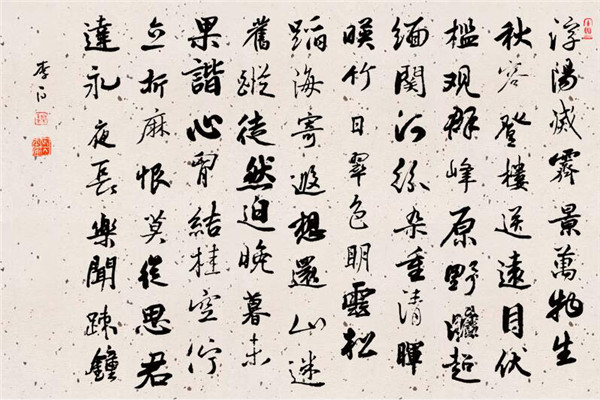 浮陽滅霽景萬物生
秋容登樓送遠目伏
檻观群峰原野曠超
緬関河紛杂重清暉
暎竹日翠色明雲松
蹈海寄遐想還山迷
舊蹤徒然迫晚暮未
果諧心胷結桂空佇
立折麻恨莫從思君
達永夜長樂聞踈鐘